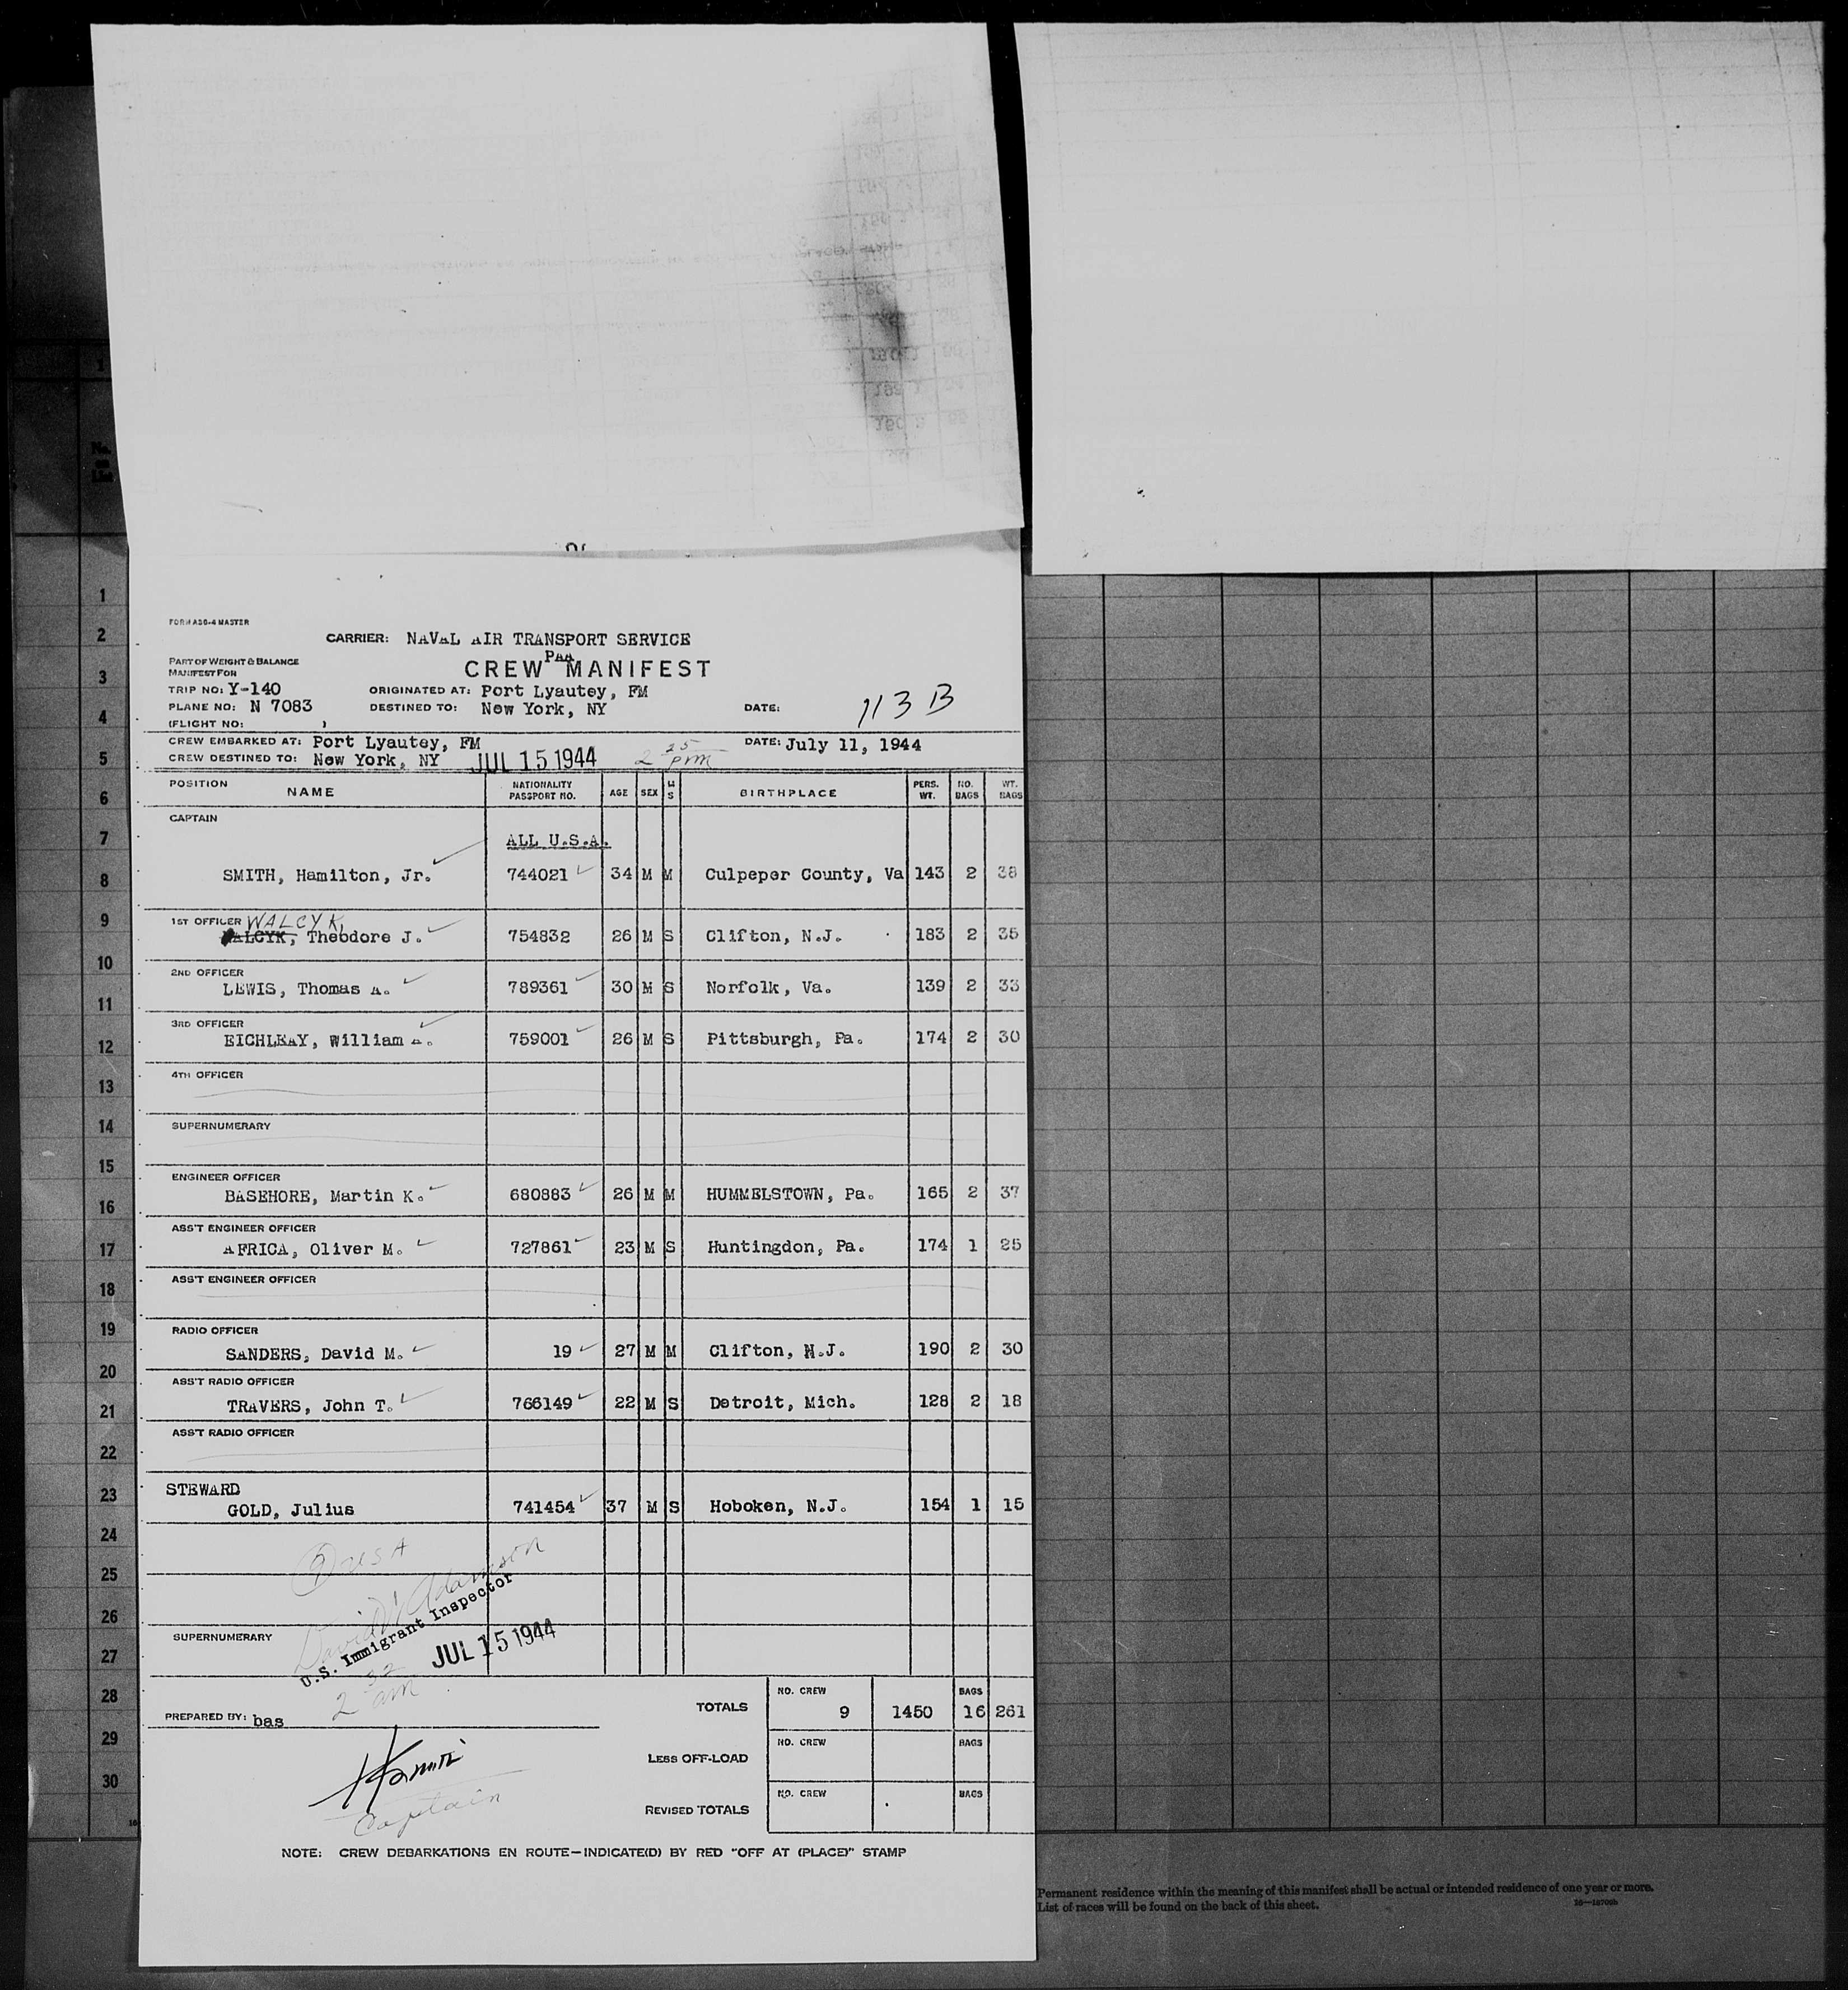 FORM ASG-4 MASTER
CARRIER: NAVAL AIR TRANSPORT SERVICE
PAA
CREW MANIFEST
PART OF WEIGHT & BALANCE
MANIFEST FOR
TRIP NO: Y-140 ORIGINATED AT: Port Lyautey, FM
PLANE NO: N 7083 DESTINED TO: New York, NY DATE: 113 B
(FLIGHT NO: )
CREW EMBARKED AT: Port Lyautey, FM DATE: July 11, 1944
CREW DESTINED TO: New York, NY JUL 15 1944 2 25 pm
POSITION NAME NATIONALITY PASSPORT NO. AGE SEX M S BIRTHPLACE PERS. WT. NO. BAGS WT. BAGS
CAPTAIN
ALL U.S.A.
SMITH, Hamilton, Jr. 744021 34 M M Culpeper County, Va 143 2 38
1ST OFFICER WALCYK,
WALCYK, Theodore J. 754832 26 M S Clifton, N.J. 183 2 35
2ND OFFICER
LEWIS, Thomas A. 789361 30 M S Norfolk, Va. 139 2 33
3RD OFFICER
EICHLEAY, William A. 759001 26 M S Pittsburgh, Pa. 174 2 30
4TH OFFICER
SUPERNUMERARY
ENGINEER OFFICER
BASEHORE, Martin K. 680883 26 M M HUMMELSTOWN, Pa. 165 2 37
ASS'T ENGINEER OFFICER
AFRICA, Oliver M. 727861 23 M S Huntingdon, Pa. 174 1 25
ASS'T ENGINEER OFFICER
RADIO OFFICER
SANDERS, David M. 19 27 M M Clifton, N.J. 190 2 30
ASS'T RADIO OFFICER
TRAVERS, John T. 766149 22 M S Detroit, Mich. 128 2 18
ASS'T RADIO OFFICER
STEWARD
GOLD, Julius 741454 37 M S Hoboken, N.J. 154 1 15
9 USA
David Adamson
U.S. Immigrant Inspector
SUPERNUMERARY JUL 15 1944
2 32 am
NO. CREW BAGS
PREPARED BY: bas TOTALS 9 1450 16 261
NO. CREW BAGS
LESS OFF-LOAD
Captain
NO. CREW BAGS
REVISED TOTALS
NOTE: CREW DEBARKATIONS EN ROUTE—INDICATE(D) BY RED "OFF AT (PLACE)" STAMP
1
2
3
4
5
6
7
8
9
10
11
12
13
14
15
16
17
18
19
20
21
22
23
24
25
26
27
28
29
30
Permanent residence within the meaning of this manifest shall be actual or intended residence of one year or more.
List of races will be found on the back of this sheet.